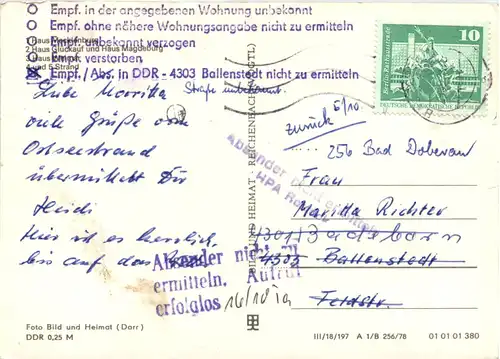 Empf. in der angegebenen Wohnung unbekannt
Empf. ohne nähere Wohnungsangabe nicht zu ermitteln
Empf. unbekannt verzogen
2 Haus Glückauf und Haus Magdeburg
Empf. verstorben
4 und 5 Strand
Empf./Abs. in DDR - 4303 Ballenstedt nicht zu ermitteln
Straße unbekannt.
10
DEUTSCHE DEMOKRATISCHE REPUBLIK
Liebe Marritta
viele Grüße vom
Ostseestrand
übermittelt Dir
Heidi
Hier ist es herrlich,
bis auf das
zurück 5/10
256 Bad Doberan
Frau
Maritta Richter
4301 Badeborn
4303 Ballenstedt
Feldstr.
Absender nicht
HPA
BILD UND HEIMAT · REICHENBACH (VOGTL)
Absender nicht zu
ermitteln. Aufruf
erfolglos 16/10
Foto Bild und Heimat (Darr)
DDR 0,25 M
III/18/197 A 1/B 256/78 01 01 01 380